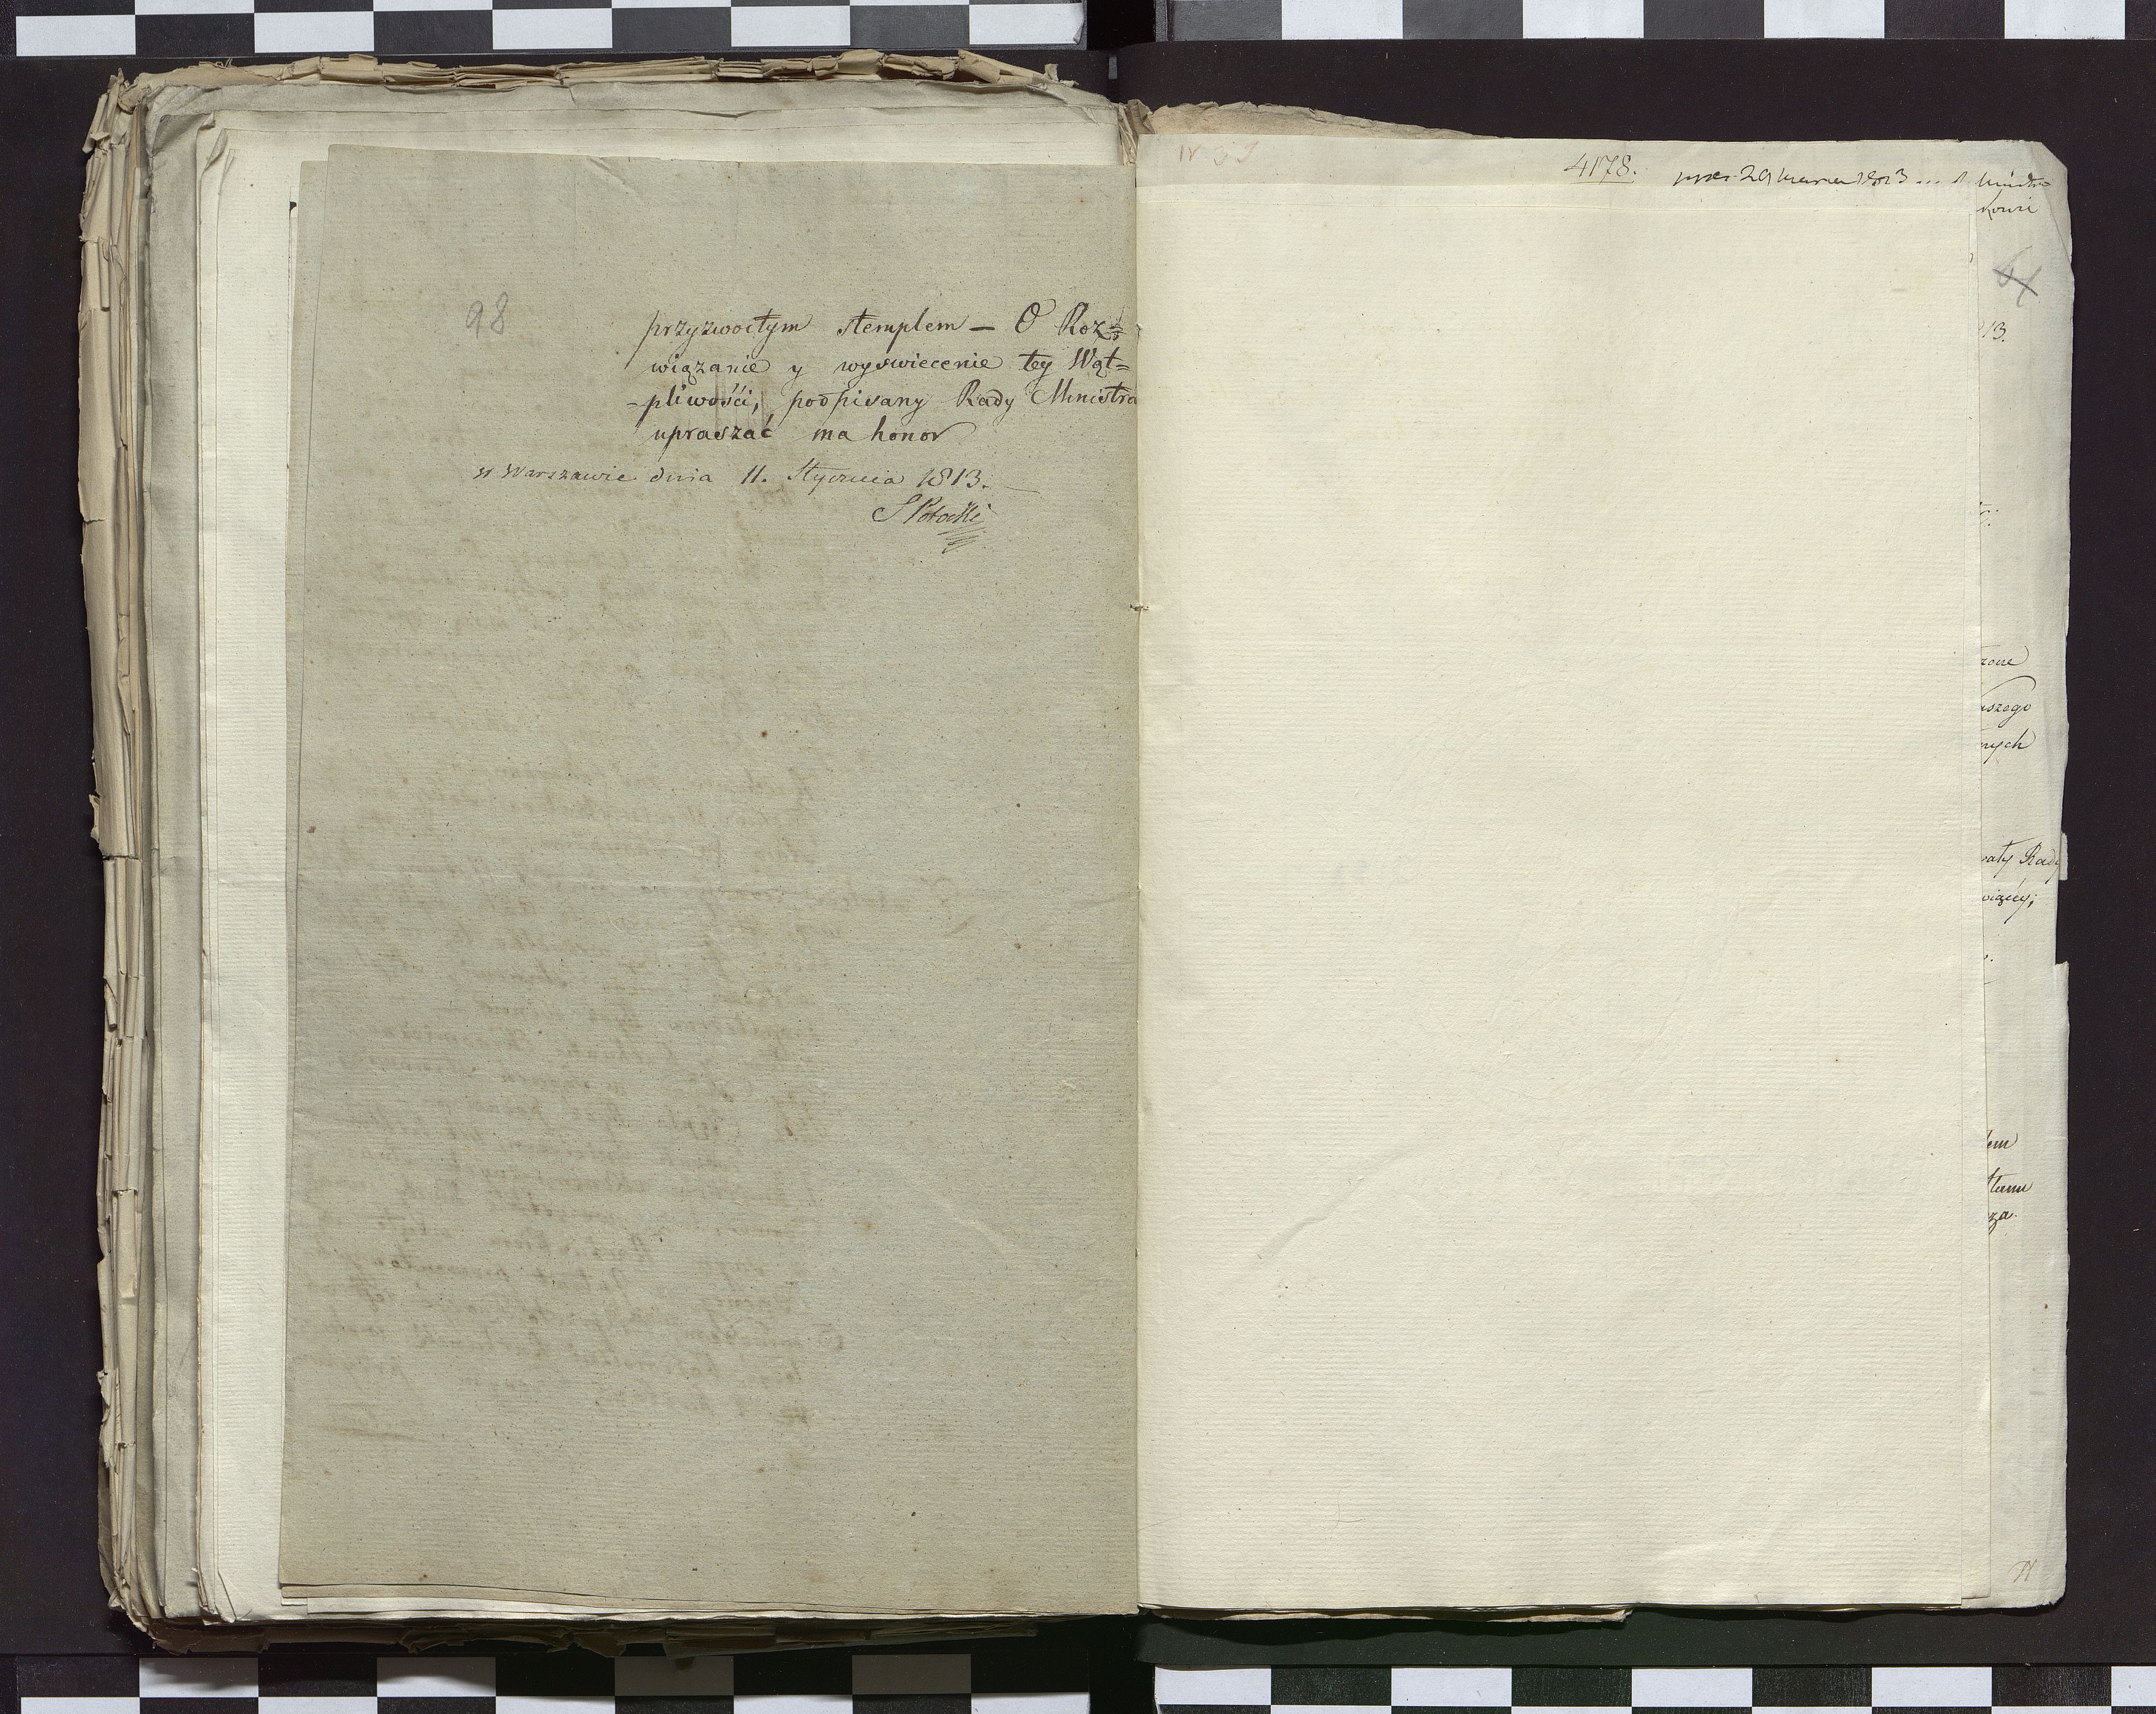 98
przyzwoitym stemplem — O Roz=
wiązanie y wyswiecenie tey Wąt=
-pliwości, podpisany Rady Ministrów
upraszać ma honor
w Warszawie dnia 11. Stycznia 1813.
S Potocki
4178.
29 marca 1813
13.
zone
aszego
nych
Rady
wiącey;
lem
za